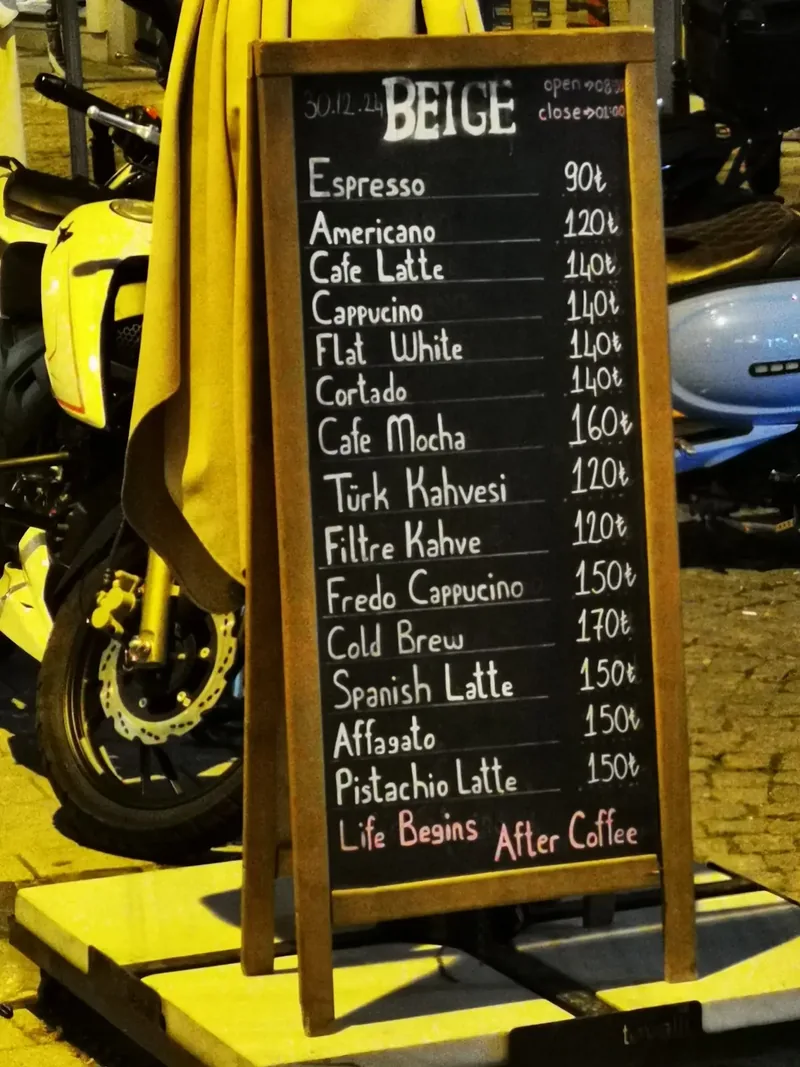 30.12.24 BEIGE open→08:30
close→01:00
Espresso 90₺
Americano 120₺
Cafe Latte 140₺
Cappucino 140₺
Flat White 140₺
Cortado 140₺
Cafe Mocha 160₺
Türk Kahvesi 120₺
Filtre Kahve 120₺
Fredo Cappucino 150₺
Cold Brew 170₺
Spanish Latte 150₺
Affagato 150₺
Pistachio Latte 150₺
Life Begins After Coffee